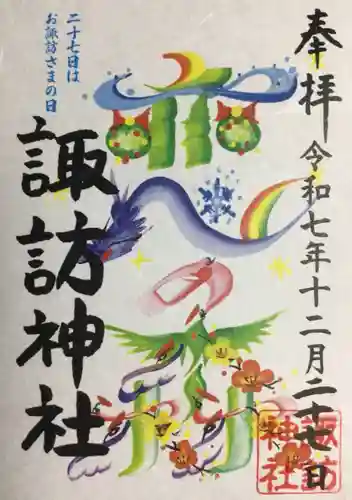 奉拝
令和七年十二月二十七日
二十七日は
お諏訪さまの日
諏訪神社
諏訪
神社